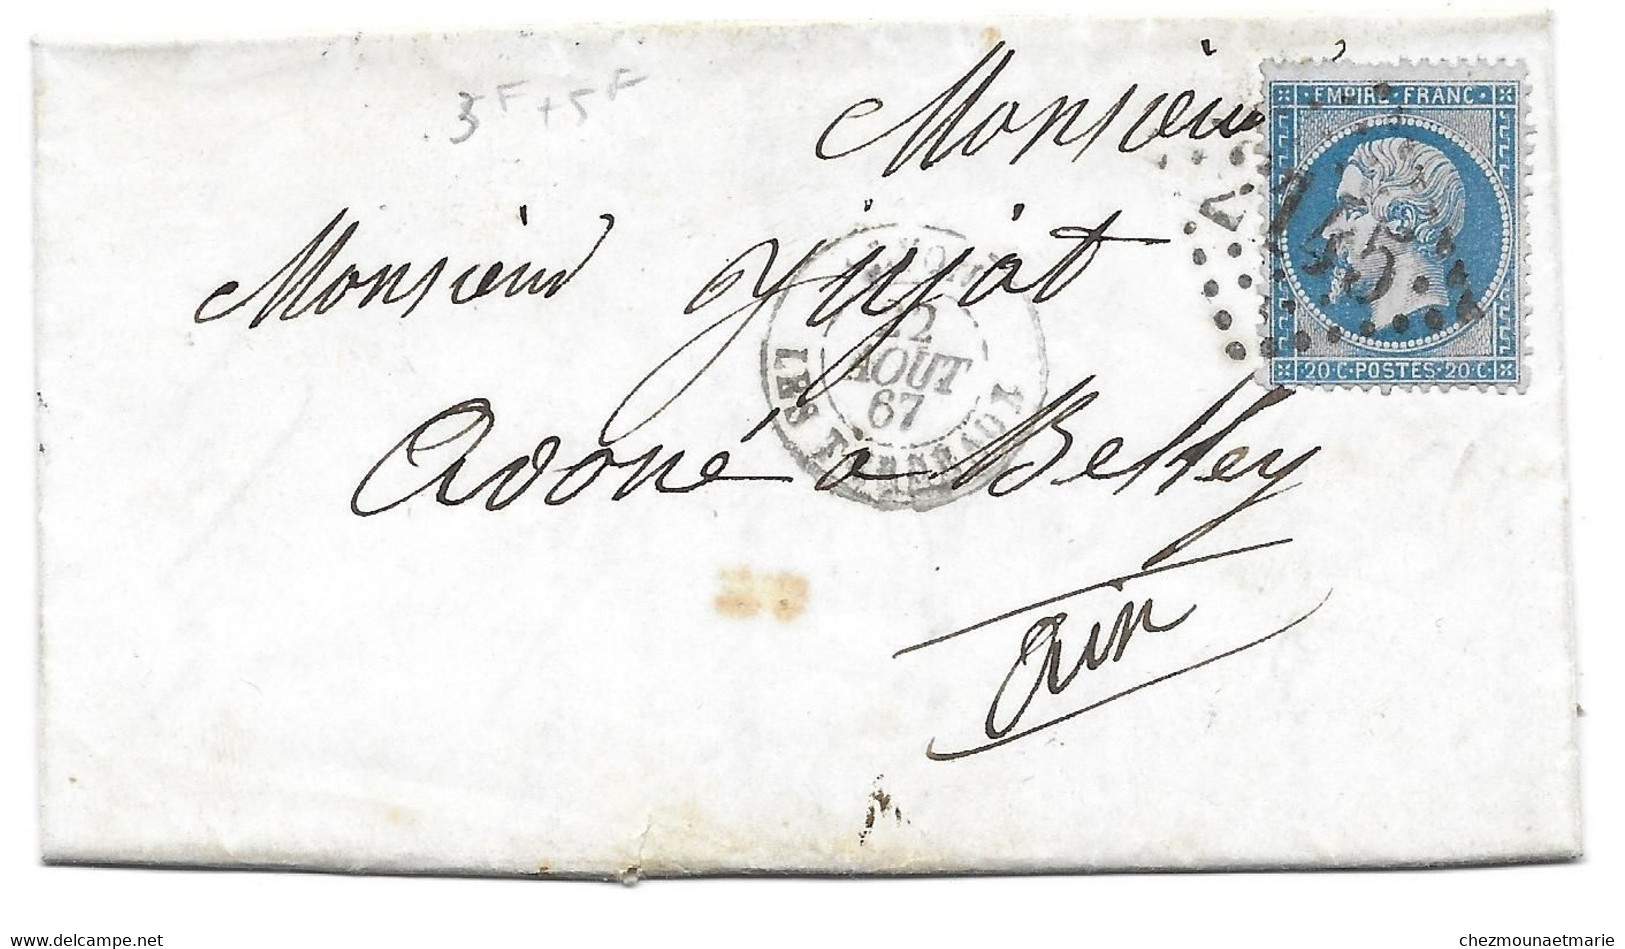 3F + 5F
Monsieur
Monsieur Jujat
Avoué à Belley
Ain
22
AOUT
67
LES TERREAUX
EMPIRE FRANC
20 C POSTES 20 C
chezmounaetmarie
www.delcampe.net